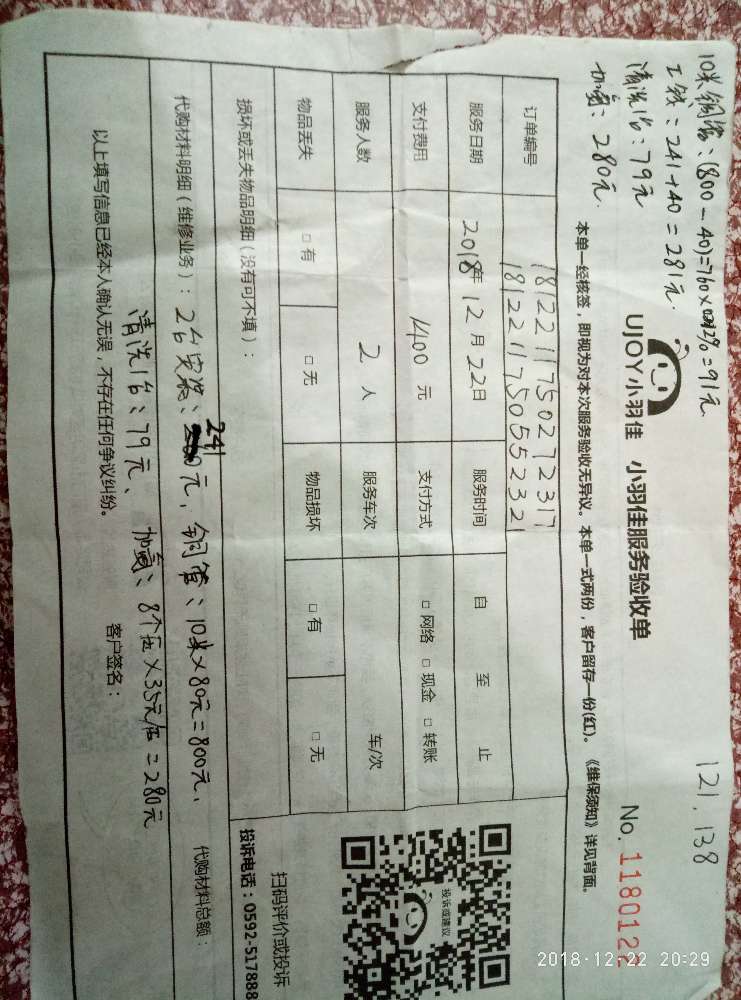 121, 138
10米铜管:(800-40)=760×0.12%=91元
工钱:241+40=281元.
清洗1台:79元
加氟:280元.
UJOY小羽佳 小羽佳服务验收单
No. 1180122
本单一经核签,即视为对本次服务验收无异议。本单一式两份,客户留存一份(红)。《维保须知》详见背面。
订单编号 181221175027 2317
181221175055 2321
服务日期 2018年12月22日 服务时间 自 至 止
支付费用 1400元 支付方式 □网络 □现金 □转账
服务人数 2人 服务车次 车/次
物品丢失 □有 □无 物品损坏 □有 □无
损坏或丢失物品明细(没有可不填):
代购材料明细(维修业务):2台安装:241元,铜管:10米×80元=800元, 代购材料总额:
清洗1台:79元、加氟:8个压×35元/压=280元
以上填写信息已经本人确认无误,不存在任何争议纠纷。 客户签名:
投诉或建议
扫码评价或投诉
投诉电话:0592-517888
2018-12-22 20:29